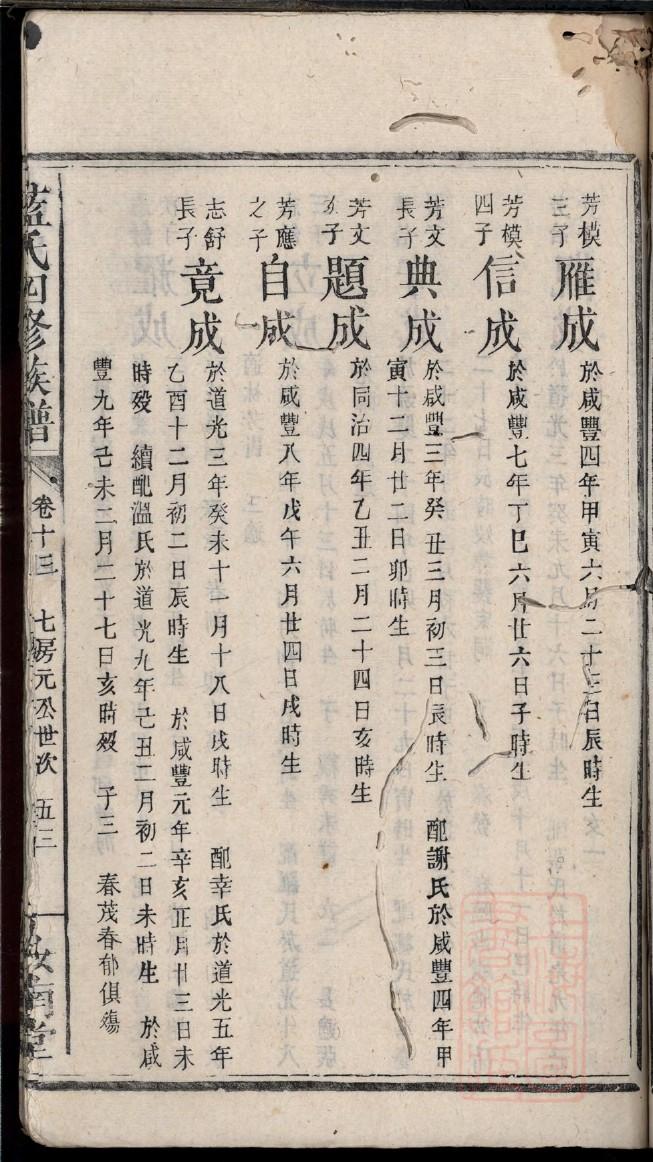 芳模三子
雁成
於咸豐四年甲寅六月二十三日辰時生
芳模四子
信成
於咸豐七年丁巳六月廿六日子時生
芳文長子
典成
於咸豐三年癸丑三月初三日辰時生 配謝氏於咸豐四年甲
寅十二月廿二日卯時生
芳文次子
題成
於同治四年乙丑二月二十四日亥時生
芳應之子
自成
於咸豐八年戊午六月廿四日戌時生
志舒長子
竟成
於道光三年癸未十一月十八日戌時生 配幸氏於道光五年
乙酉十二月初二日辰時生 於咸豐元年辛亥正月廿三日未
時歿 續配溫氏於道光九年己丑二月初二日未時生 於咸
豐九年己未二月二十七日亥時歿 子三 春茂春郁俱殤
藍氏四修族譜 卷十三 七房元公世次 五三 汝南堂